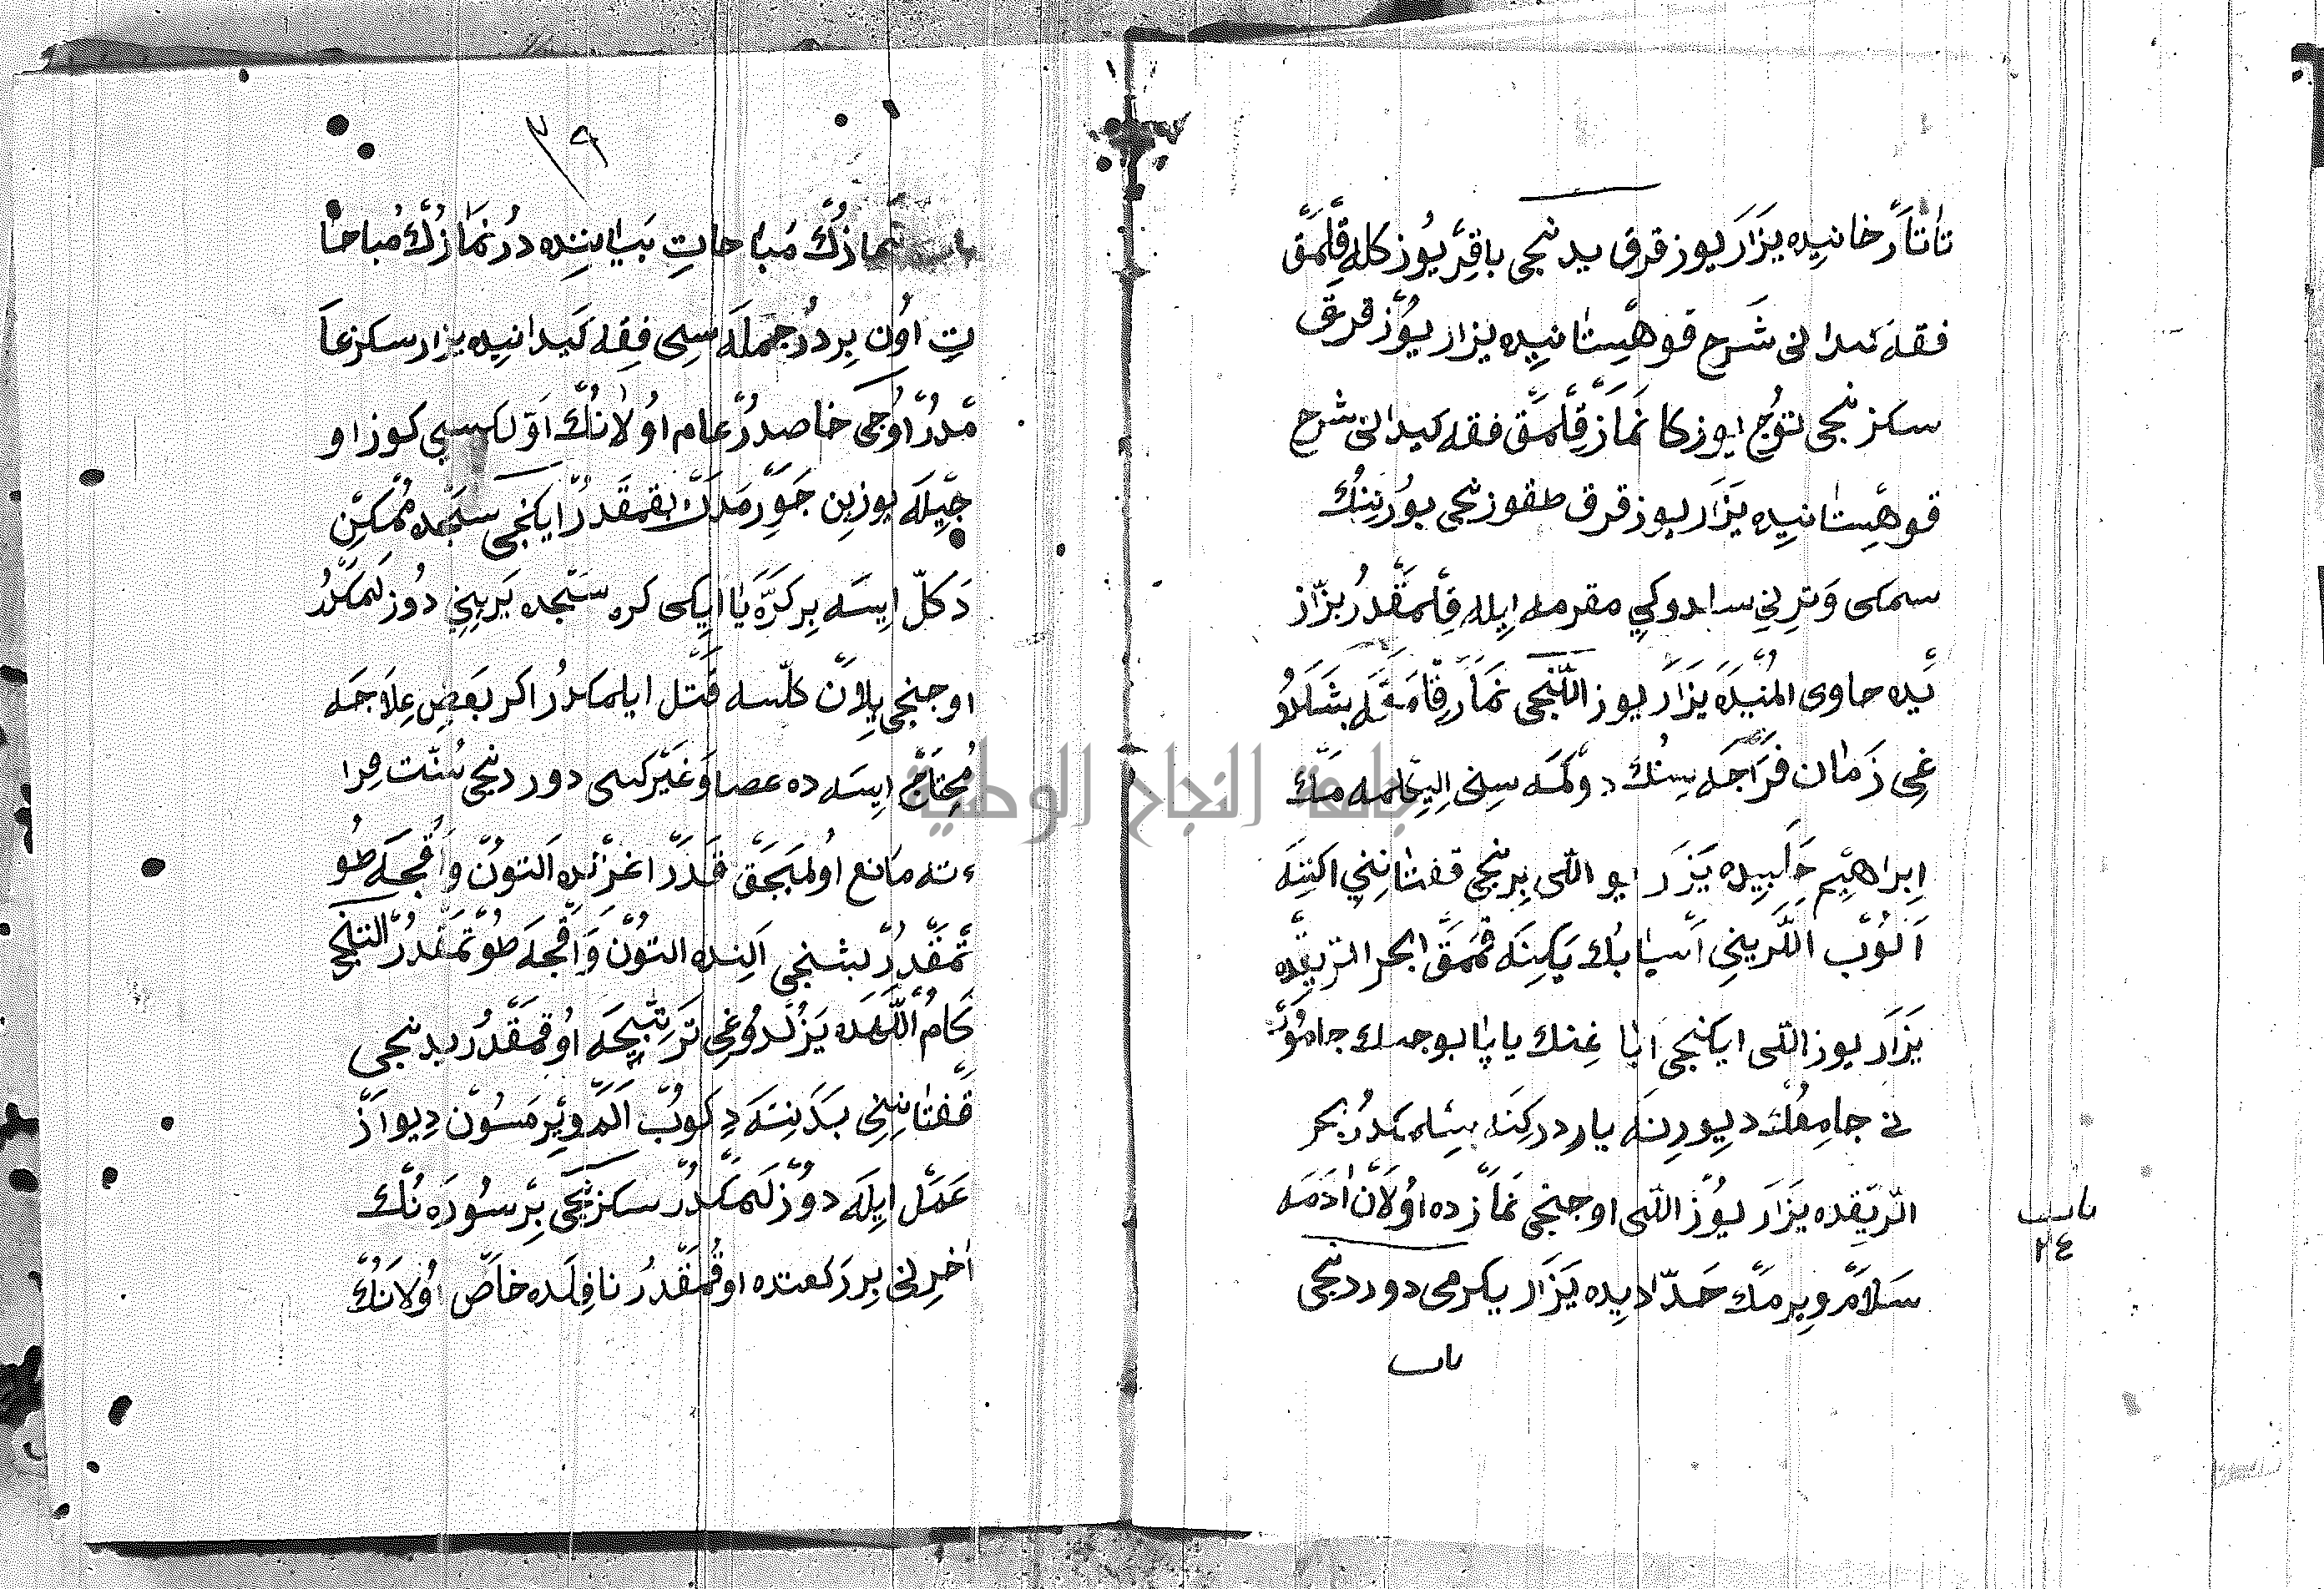 تاتارخانیده یزار یوز قرق یدنجی باقر یوز کله قلمق
فقه کیدانی شرح قوهستانیده یزار یوز قرق
سکزنجی یوزکا نماز قلمق فقه کیدانی شرح
قوهستانیده یزار یوز قرق طقوزنجی بورننك
سمکی وترنی ایله قلمقدر بزاز
یه حاوی المنیده یزار یوز اللنجی نماز
غی زمان فراجه سنك دوکمه سنی
ابراهیم حلبیده یزر یو اللی برنجی قفتاننی اکننه
الوب اللرینی یکینه قمق البحر الریقده
یزار یوز اللی ایکنجی
نی جامعك دیورنه بحر
الریقده یزار یوز اللی اوجنجی نمازده اولان ادمه
سلام ویرمك حدادیده یزار یکرمی دوردنجی
باب
باب
٢٤
٣٩
باب نمازك مباحات بیاننده در نمازك مباحا
ت اون بردر جمله سی فقه کیدانیده یزار سکز عا
مدر اوجی خاصدر عام اولانك اولکسی کوز او
جیله یوزین جورمدك بقمقدر ایکنجی سجده ممکن
دکل ایسه بر کره یا ایکی کره سجده یرینی دوزلمکدر
اوجنجی یلان کلسه قتل ایلمکدر اکر بعض علاجه
محتاج ایسه ده عصا وغیرکسی دوردنجی سنت قرا
ءته مانع اولمیجق قدر اغزنده التون واقجه طو
تمقدر بشنجی النده التون واقجه طوتمقدر التنجی
کلام اللهده یزلدوغی ترتیبجه اوقمقدر یدنجی
قفتاننی بدننه دکوب الم ویرمسون دیو از
عمل ایله دوزلمکدر سکزنجی بر سوره نك
اخرنی بر رکعتده اوقمقدر نافله ده خاص اولانك
جامعة النجاح الوطنية